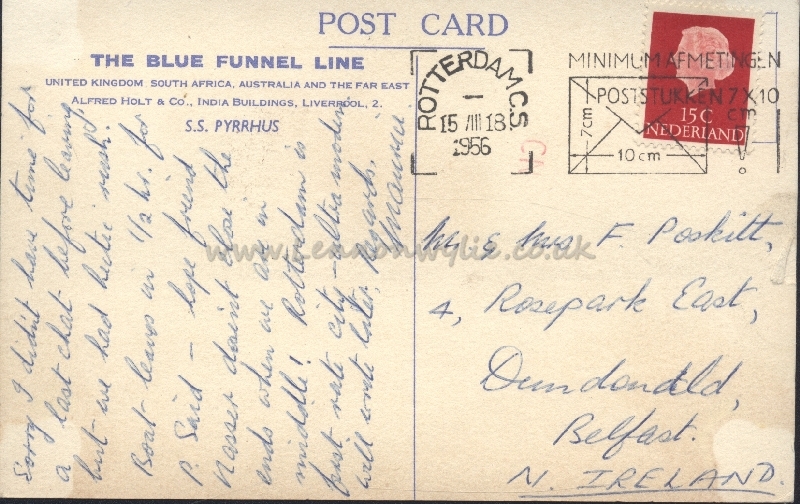 POST CARD
THE BLUE FUNNEL LINE
UNITED KINGDOM, SOUTH AFRICA, AUSTRALIA AND THE FAR EAST
ALFRED HOLT & CO., INDIA BUILDINGS, LIVERPOOL, 2.
S.S. PYRRHUS
Sorry I didn't have time for
a last chat before leaving
but we had hectic rush!
Boat leaves in 1/2 hr. for
P. Said – hope friend
Nasser doesn't close the
ends when we are in
middle! Rotterdam is
first rate city – ultra modern
Will write later, Regards.
Maurice
ROTTERDAM C.S.
15 VIII 18
1956
MINIMUM AFMETINGEN
POSTSTUKKEN 7X10
cm
7cm
10cm
15C
NEDERLAND
Mr & Mrs F. Poskitt,
4, Rosepark East,
Dundonald,
Belfast.
N. IRELAND.
www.Lennonwylie.co.uk